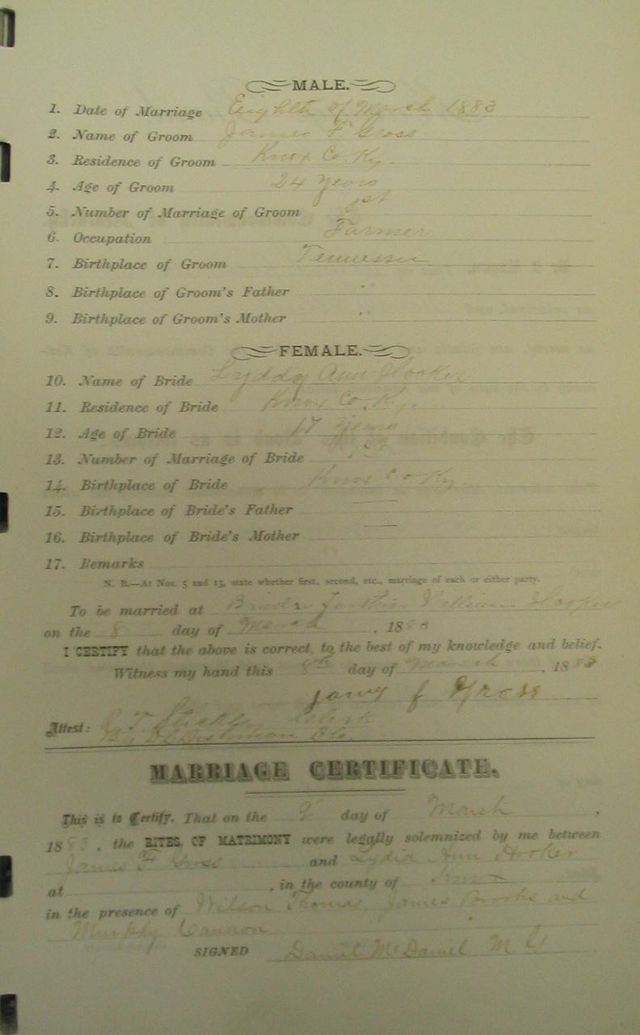 MALE.
1. Date of Marriage Eighth of March 1883
2. Name of Groom James F Gross
3. Residence of Groom Knox Co. Ky.
4. Age of Groom 24 years
5. Number of Marriage of Groom 1st
6. Occupation Farmer
7. Birthplace of Groom Tennessee
8. Birthplace of Groom's Father "
9. Birthplace of Groom's Mother "
FEMALE.
10. Name of Bride Lydda Ann Hooker
11. Residence of Bride Knox Co. Ky.
12. Age of Bride 17 years
13. Number of Marriage of Bride
14. Birthplace of Bride Knox Co Ky
15. Birthplace of Bride's Father
16. Birthplace of Bride's Mother
17. Remarks
N. B.—At Nos. 5 and 13, state whether first, second, etc., marriage of each or either party.
To be married at William Hooker
on the 8 day of March, 1883
I CERTIFY that the above is correct, to the best of my knowledge and belief.
Witness my hand this 8th day of March, 1883
James f Gross
Attest: Clerk
MARRIAGE CERTIFICATE.
This is to Certify, That on the 8 day of March,
1883, the RITES OF MATRIMONY were legally solemnized by me between
James F Gross and Lydia Ann Hooker
at , in the county of Knox
in the presence of Wilson Thomas, James Brooks and
Murphy Cannon
SIGNED Daniel McDaniel M G